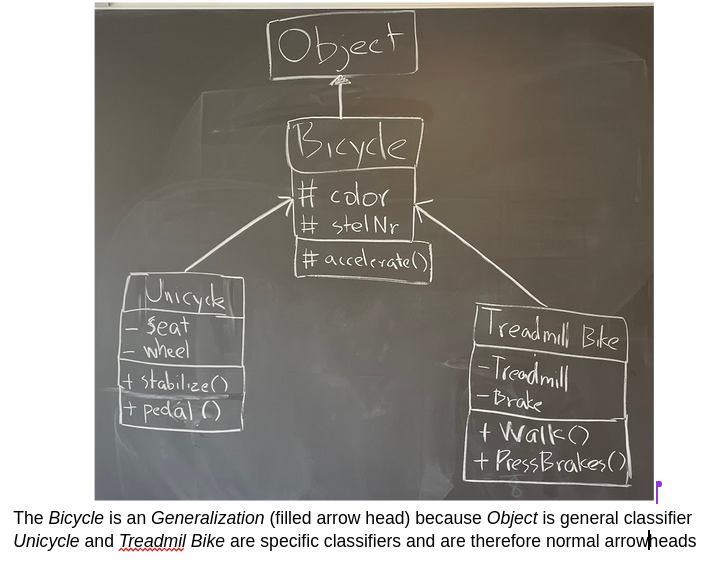 Object
Bicycle
# color
# stelNr
# accelerate()
Unicycle
- Seat
- wheel
+ stabilize()
+ pedal()
Treadmill Bike
- Treadmill
- Brake
+ Walk()
+ PressBrakes()
The Bicycle is an Generalization (filled arrow head) because Object is general classifier
Unicycle and Treadmil Bike are specific classifiers and are therefore normal arrowheads